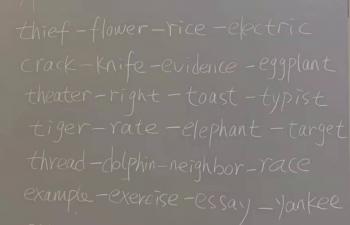 thief-flower-rice-electric
crack-knife-evidence-eggplant
theater-right-toast-typist
tiger-rate-elephant-target
thread-dolphin-neighbor-race
example-exercise-essay-yankee